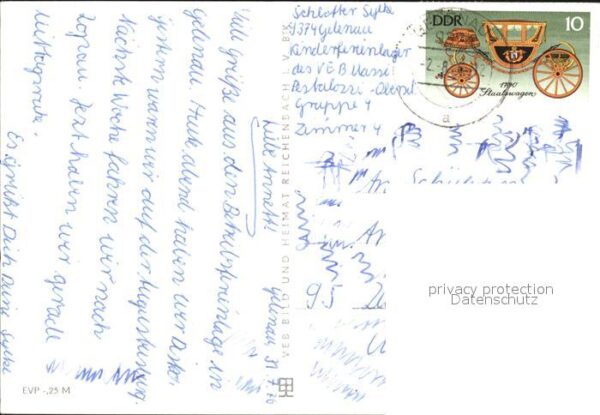 Gelenau 31.7.76
Liebe Annett!
Viele Grüße aus dem Betriebsferienlager in
Gelenau. Heute Abend haben wir Disko.
gestern waren wir auf der Augustusburg.
Nächste Woche fahren wir nach
Zopau. Jetzt haben wir gerade
Mittagsruhe.
Es grüßt Dich Deine Sylke
EVP -,25 M
VEB BILD UND HEIMAT REICHENBACH I. V.
Schlotter Sylke
9374 Gelenau
Kinderferienlager
des VEB
Pestalozzi-
Gruppe 4
Zimmer 4
DDR
10
1790
Staatswagen
An
95
privacy protection
Datenschutz